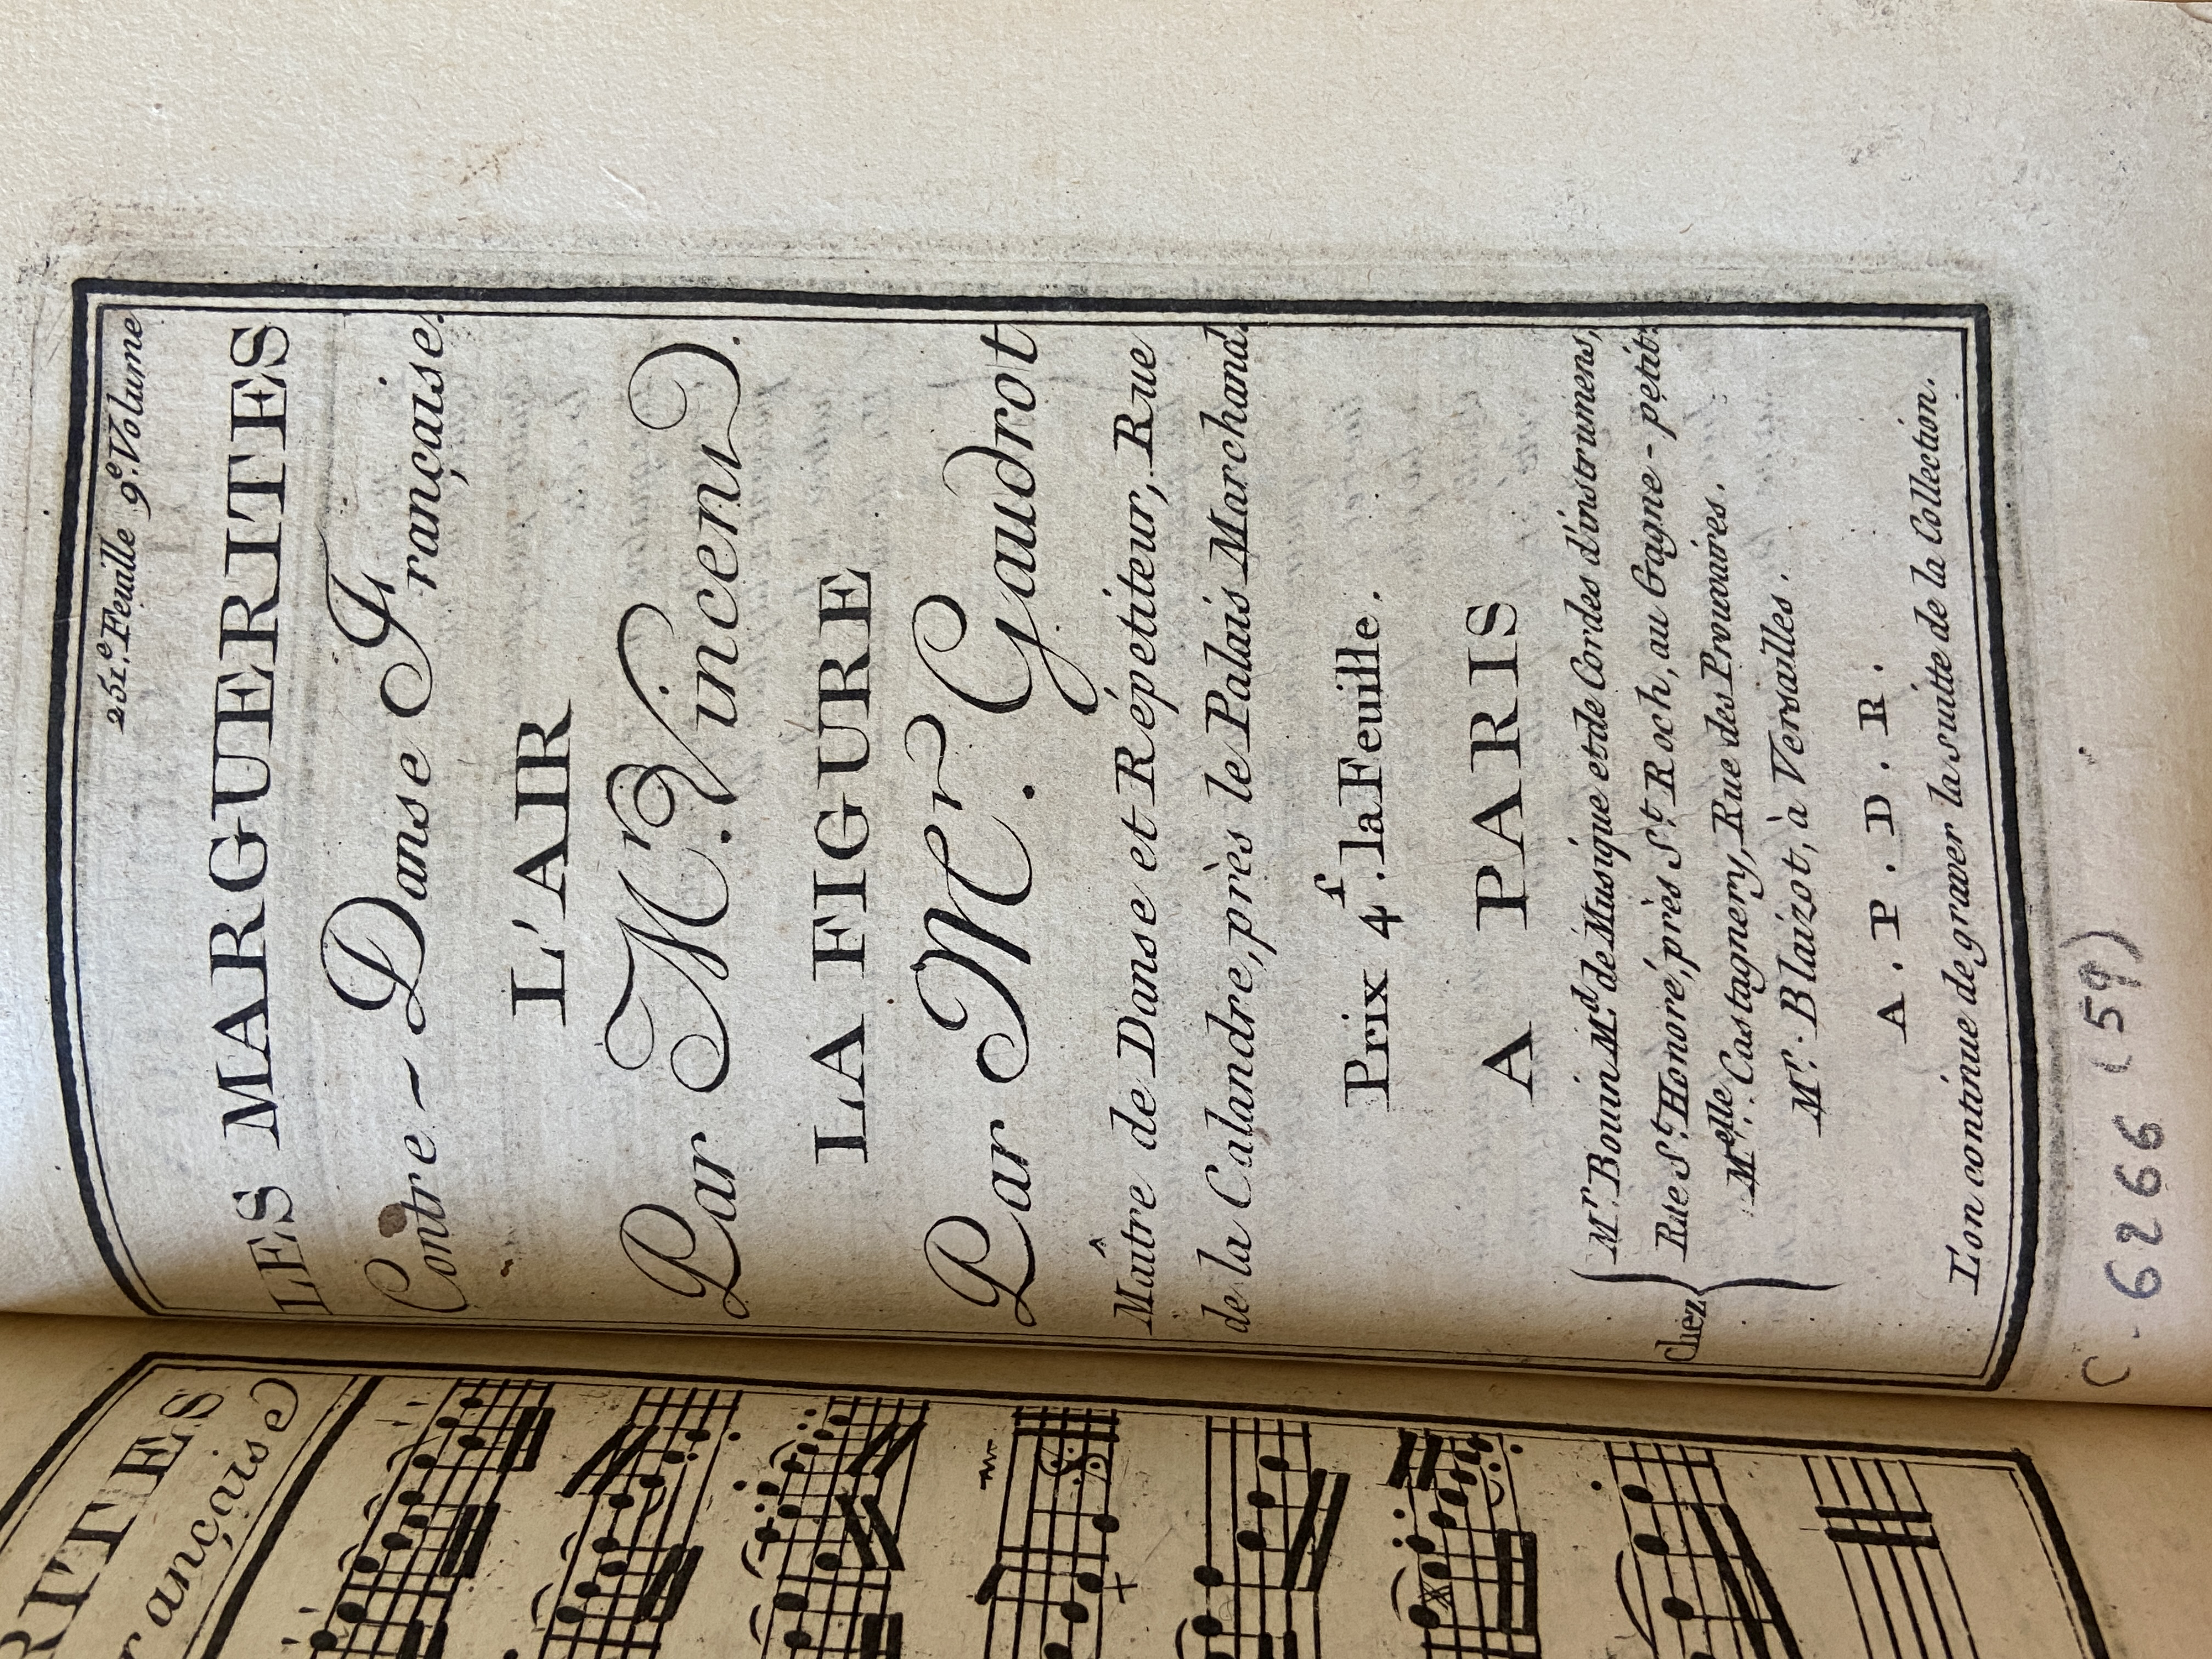 251.e Feuille 9.e Volume
LES MARGUERITES
Contre-Danse Française.
L'AIR
Par Mr. Vincent.
LA FIGURE
Par Mr. Gaudrot
Maître de Danse et Répetiteur, Rue
de la Calandre, près le Palais Marchand.
Prix 4.f la Feuille.
A PARIS
Chez
Mr. Bouin Md. de Musique et de Cordes d'instrumens,
Rue St. Honoré, près St. Roch, au Gagne-petit.
Melle. Castagnery, Rue des Prouvaires.
Mr. Blaizot, à Versailles.
A . P . D . R .
L'on continue de graver la suitte de la Collection.
6266 (59)
RITES
rançaise